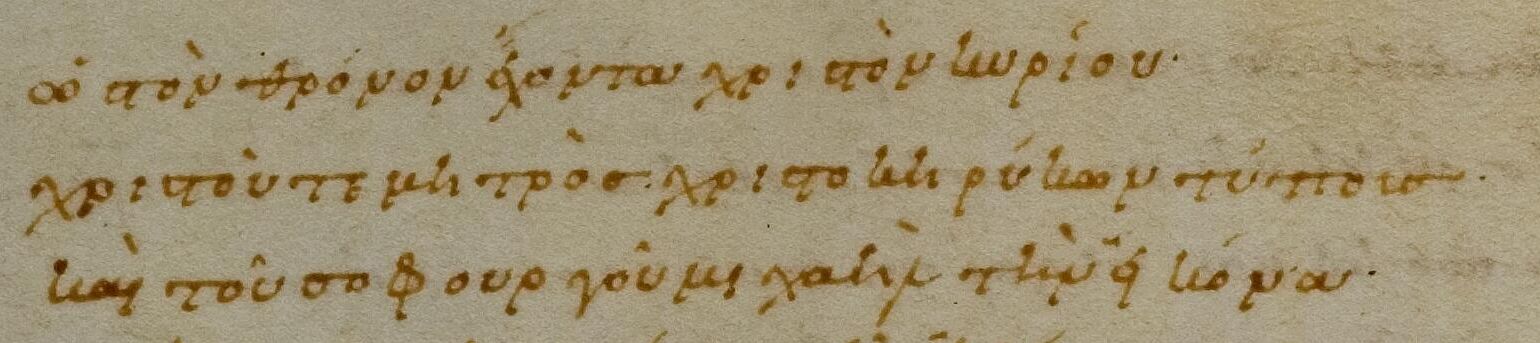 ὁ τὸν θρόνον ἔχοντα χριστὸν κυρίου·
χριστοῦ τε μητρὸς· χριστοκηρύκων τύποις·
καὶ τοῦ σοφουργοῦ μιχαὴλ τὴν εἰκόνα·